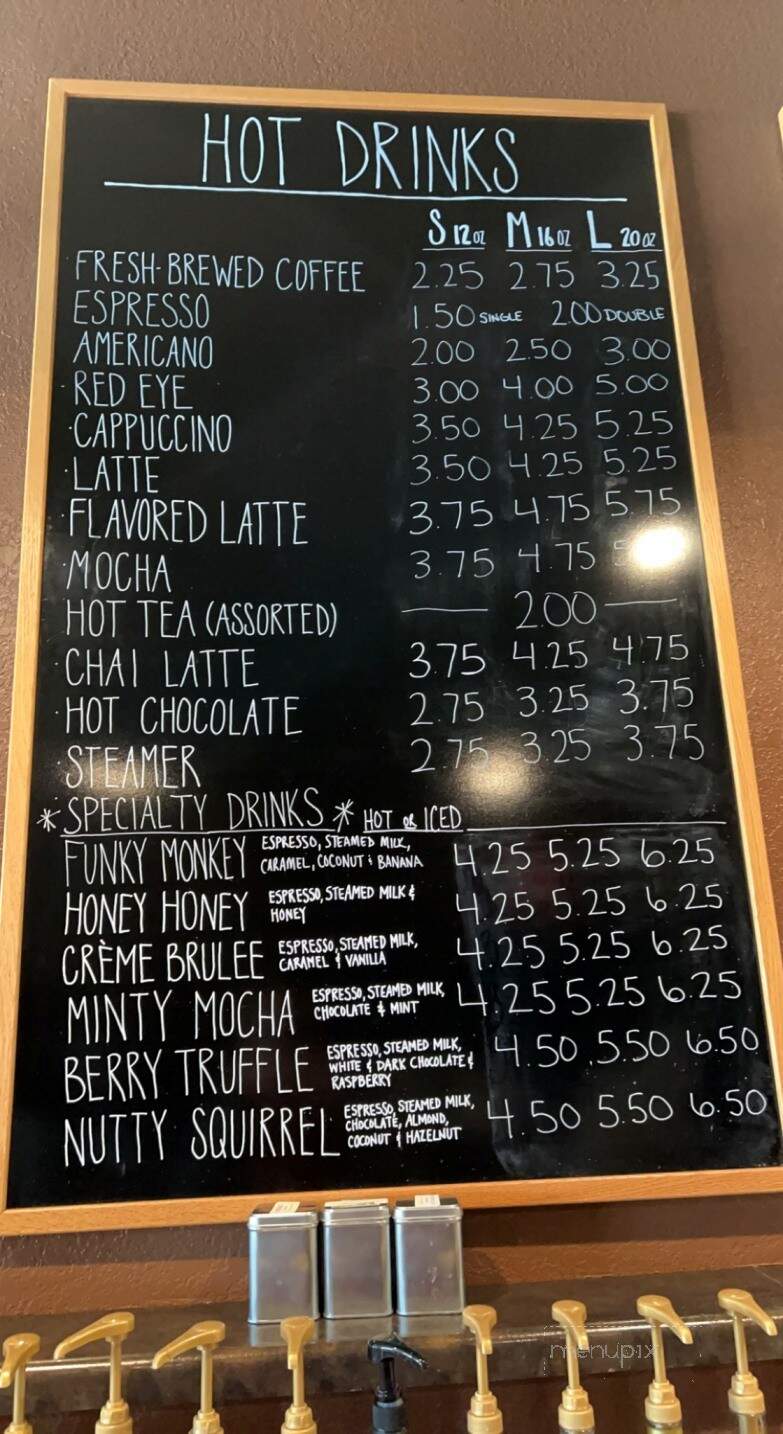 HOT DRINKS
S 12oz M 16oz L 20oz
FRESH-BREWED COFFEE 2.25 2.75 3.25
ESPRESSO 1.50 SINGLE 2.00 DOUBLE
AMERICANO 2.00 2.50 3.00
RED EYE 3.00 4.00 5.00
CAPPUCCINO 3.50 4.25 5.25
LATTE 3.50 4.25 5.25
FLAVORED LATTE 3.75 4.75 5.75
MOCHA 3.75 4.75
HOT TEA (ASSORTED) 2.00
CHAI LATTE 3.75 4.25 4.75
HOT CHOCOLATE 2.75 3.25 3.75
STEAMER 2.75 3.25 3.75
*SPECIALTY DRINKS* HOT OR ICED
FUNKY MONKEY ESPRESSO, STEAMED MILK, 4.25 5.25 6.25
CARAMEL, COCONUT & BANANA
HONEY HONEY ESPRESSO, STEAMED MILK & 4.25 5.25 6.25
HONEY
CRÈME BRULEE ESPRESSO, STEAMED MILK, 4.25 5.25 6.25
CARAMEL & VANILLA
MINTY MOCHA ESPRESSO, STEAMED MILK, 4.25 5.25 6.25
CHOCOLATE & MINT
BERRY TRUFFLE ESPRESSO, STEAMED MILK, 4.50 5.50 6.50
WHITE & DARK CHOCOLATE &
RASPBERRY
NUTTY SQUIRREL ESPRESSO, STEAMED MILK, 4.50 5.50 6.50
CHOCOLATE, ALMOND,
COCONUT & HAZELNUT
menupix